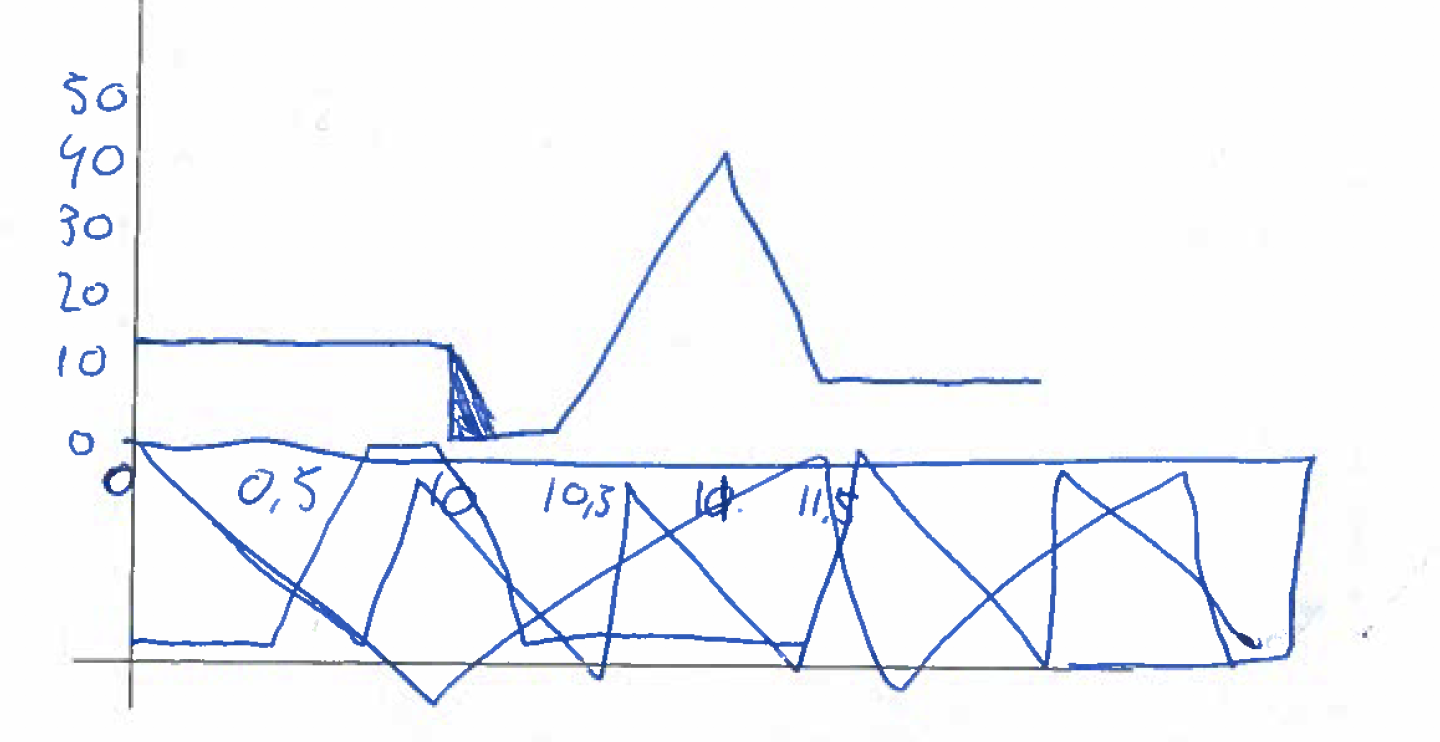 50
40
30
20
10
0
0 0,5 10 10,3 11,5